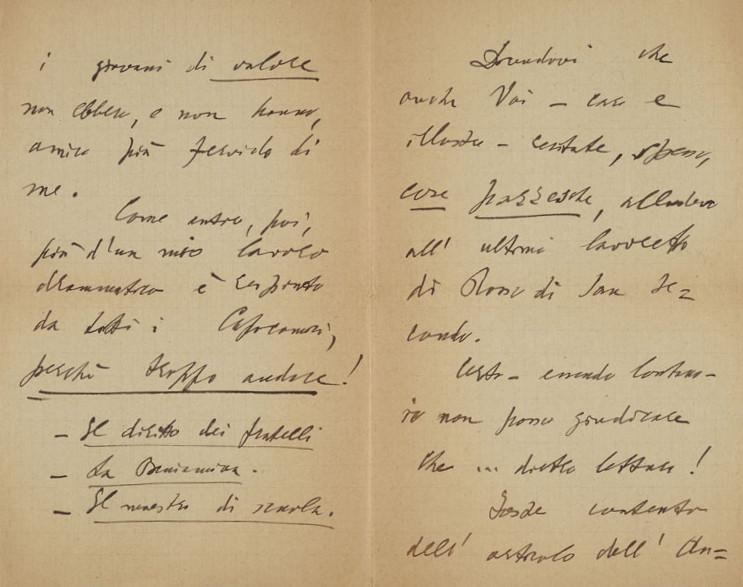 i giovani di valore
non ebbero, e non hanno,
amico più fervido di
me.
Come autore, poi,
più d'un mio lavoro
drammatico è respinto
da tutti i Capocomici,
perchè troppo audace!
- Il diritto dei fratelli
- La Beniamina.
- Il maestro di scuola.
che
anche Voi - caro e
illustre - , spesso,
cose pazzesche, alludevo
all' ultimo lavoretto
di Rosso di San Se=
condo.
Certo - essendo lontano -
io non posso giudicare
che ... dietro lettura!
contento
dell' articolo dell' An=